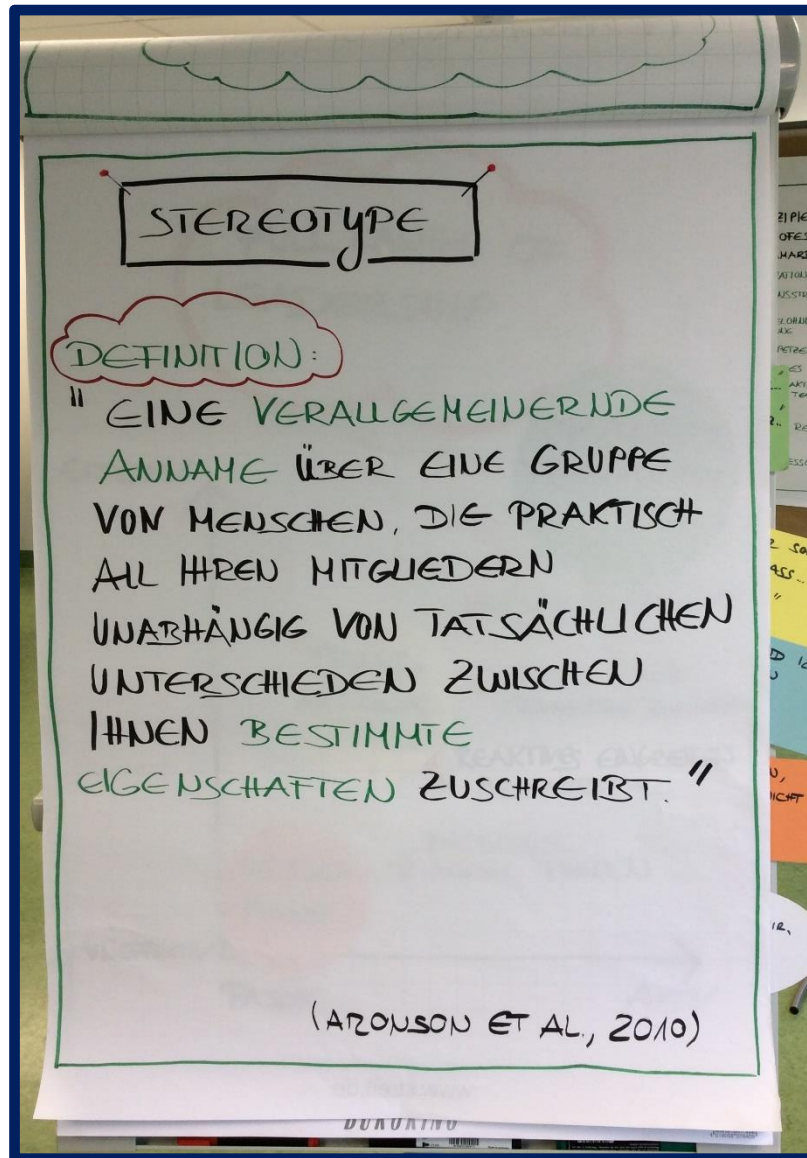 STEREOTYPE
DEFINITION:
" EINE VERALLGEMEINERNDE
ANNAME ÜBER EINE GRUPPE
VON MENSCHEN, DIE PRAKTISCH
ALL IHREN MITGLIEDERN
UNABHÄNGIG VON TATSÄCHLICHEN
UNTERSCHIEDEN ZWISCHEN
IHNEN BESTIMMTE
EIGENSCHAFTEN ZUSCHREIBT. "
(ARONSON ET AL., 2010)